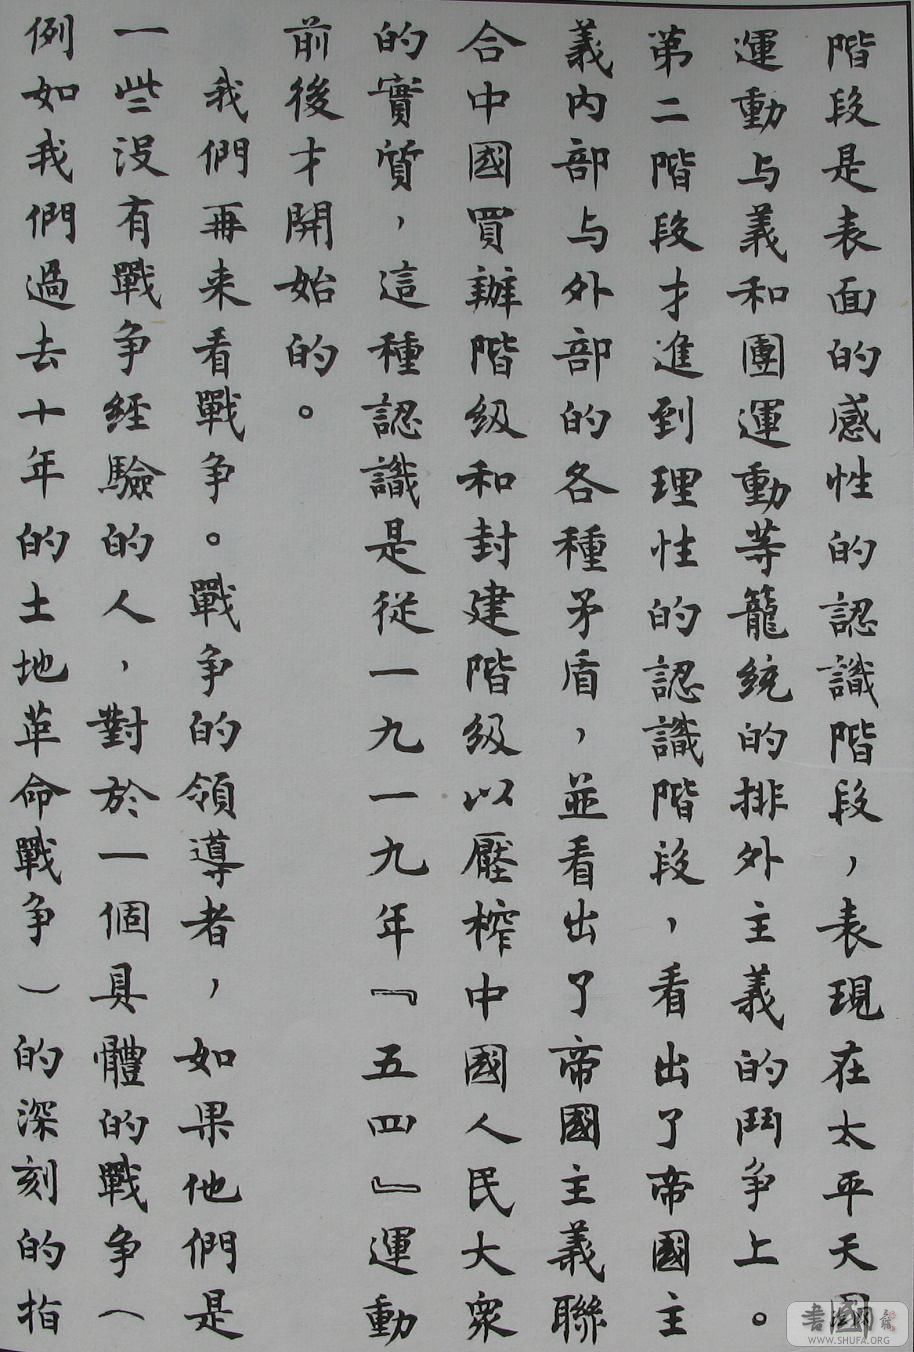 階段是表面的感性的認識階段，表現在太平天國
運動与義和團運動等籠統的排外主義的鬥争上。
第二階段才進到理性的認識階段，看出了帝國主
義内部与外部的各種矛盾，並看出了帝國主義聯
合中國買辦階级和封建階级以壓榨中國人民大衆
的實質，這種認識是從一九一九年『五四』運動
前後才開始的。
我們再来看戰争。戰争的領導者，如果他們是
一些没有戰争經驗的人，對於一個具體的戰争（
例如我們過去十年的土地革命戰争）的深刻的指
WWW.SHUFA.ORG